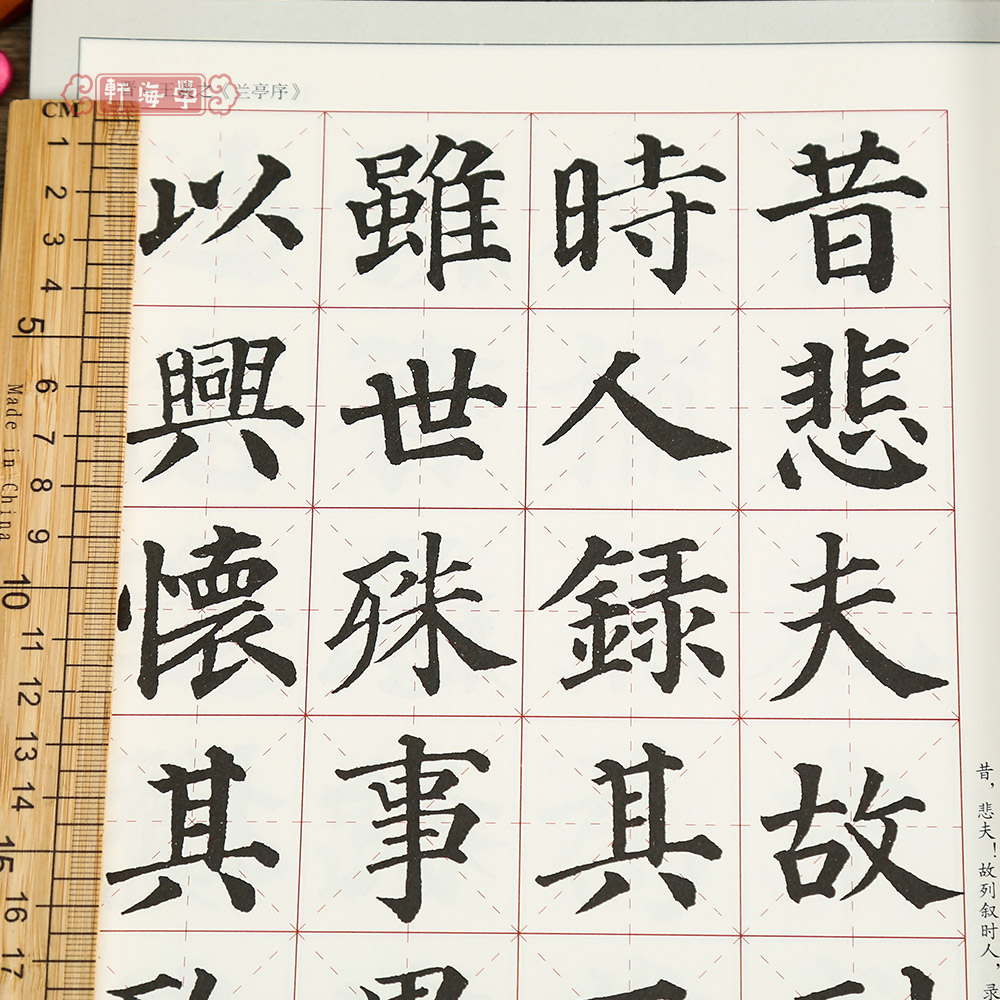 軒海學
晋 王羲之《兰亭序》
昔悲夫故
時人録其
雖世殊事
以興懷其
昔，悲夫！故列叙时人，录
CM
1
2
3
4
5
6
7
8
9
10
11
12
13
14
15
16
17
Made in China